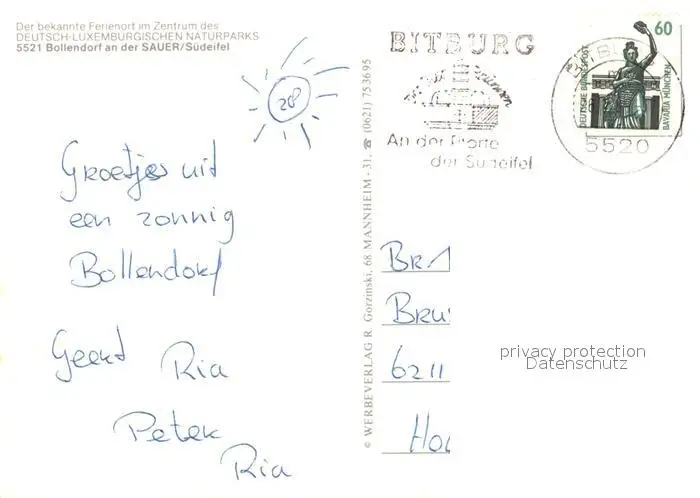 Der bekannte Ferienort im Zentrum des
DEUTSCH-LUXEMBURGISCHEN NATURPARKS
5521 Bollendorf an der SAUER/Südeifel
28°
Groetjes uit
een zonnig
Bollendorf
Geert Ria
Peter
Ria
© WERBEVERLAG R. Gorzinski, 68 MANNHEIM - 31, ☎ (0621) 753695
BITBURG
An der Pforte
der Südeifel
5520
60
DEUTSCHE BUNDESPOST
BAVARIA MÜNCHEN
Br. 1
Bru
6211
Ho
privacy protection
Datenschutz